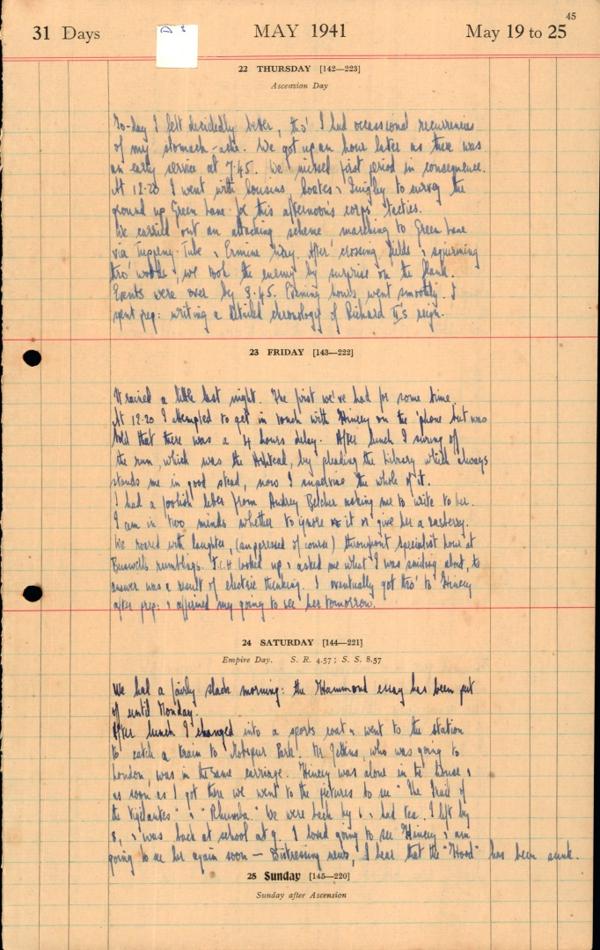 45
31 Days MAY 1941 May 19 to 25
22 THURSDAY [142—223]
Ascension Day
To-day I felt decidedly better, tho' I had occassional recurrencies
of my stomach-ache. We got up an hour later as there was
an early service at 7.45. We missed first period in consequence.
At 12-20 I went with Cousins, Coates & Quigley to survey the
ground up Green Lane for this afternoon's corps' tactics.
We carried out an attacking scheme marching to Green Lane
via Tuppeny-Tube & Ermine Way. After crossing fields & squirming
thro' woods, we took the enemy by surprise on the flank.
Events were over by 3.45. Evening hours went smoothly. I
spent prep: writing a detailed chronology of Richard II's reign.
23 FRIDAY [143—222]
It rained a little last night. The first we've had for some time.
At 12-20 I attempted to get in touch with Hincey on the 'phone but was
told that there was a 4 hours delay. After lunch I swung off
the run, which was the Ashtead, by pleading the Library which always
stands me in good stead, now I supervise the whole of it.
I had a foolish letter from Audrey Belcher asking me to write to her.
I am in two minds whether to ignore it or give her a rasberry.
We roared with laughter, (suppressed of course) throughout specialist hour at
Buswell's rumblings. T.C.H. looked up & asked me what I was smiling about, to
answer was a result of electric thinking. I eventually got thro' to Hincey
after prep: & affirmed my going to see her tomorrow.
24 SATURDAY [144—221]
Empire Day. S. R. 4.57; S. S. 8.57
We had a fairly slack morning: the Hammond essay has been put
off until Monday.
After lunch I changed into a sports coat & went to the station
to catch a train to Motspur Park. Mr. Jenkins, who was going to
London, was in the same carriage. Hincey was alone in the house &
as soon as I got there we went to the pictures to see "The Trail of
the Vigilantes" & "Rhumba". We were back by 6 & had tea. I left by
8, & was back at school at 9. I loved going to see Hincey & am
going to see her again soon — Distressing news, I hear that the "Hood" has been sunk.
25 Sunday [145—220]
Sunday after Ascension